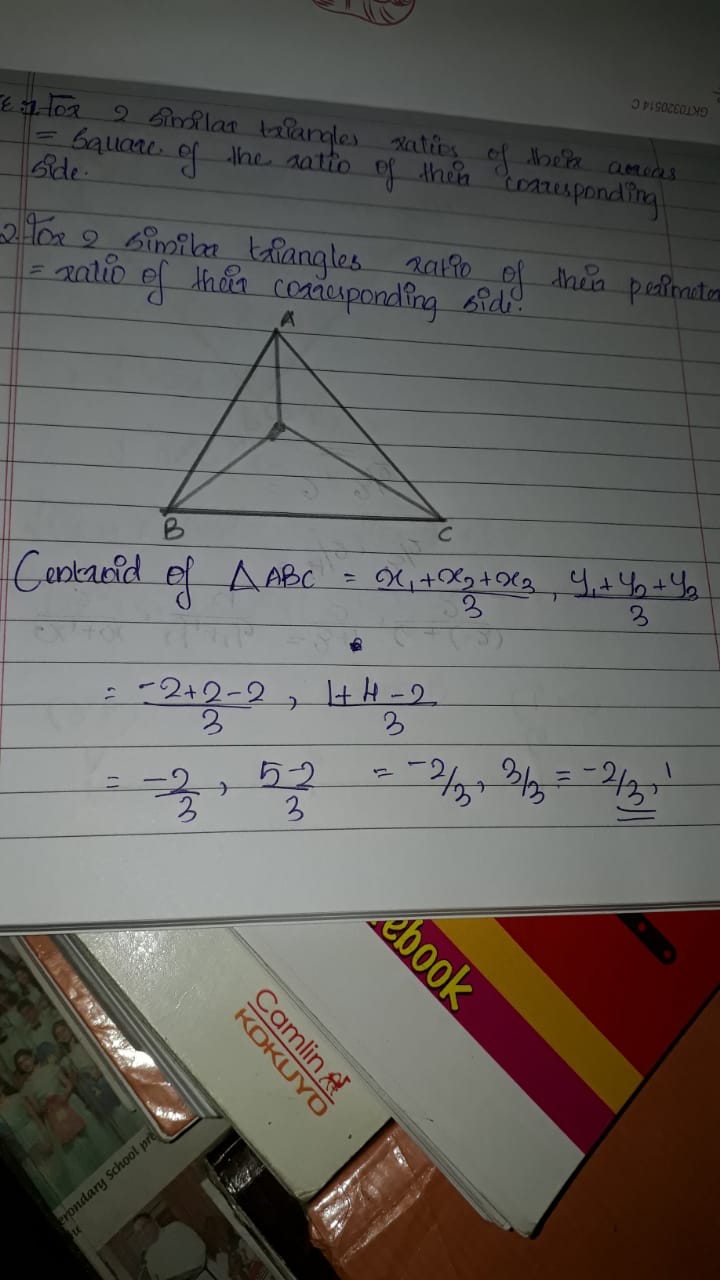 GKT0320514 C
1. For 2 similar triangles ratios of their areas
= Square of the ratio of their corresponding
side.
2. For 2 similar triangles ratio of their perimeter
= ratio of their corresponding side.
A
B
C
Centroid of ΔABC = x₁+x₂+x₃/3, y₁+y₂+y₃/3
= -2+2-2/3, 1+4-2/3
= -2/3, 5-2/3 = -2/3, 3/3 = -2/3, 1
ebook
Camlin
KOKUYO
Secondary School